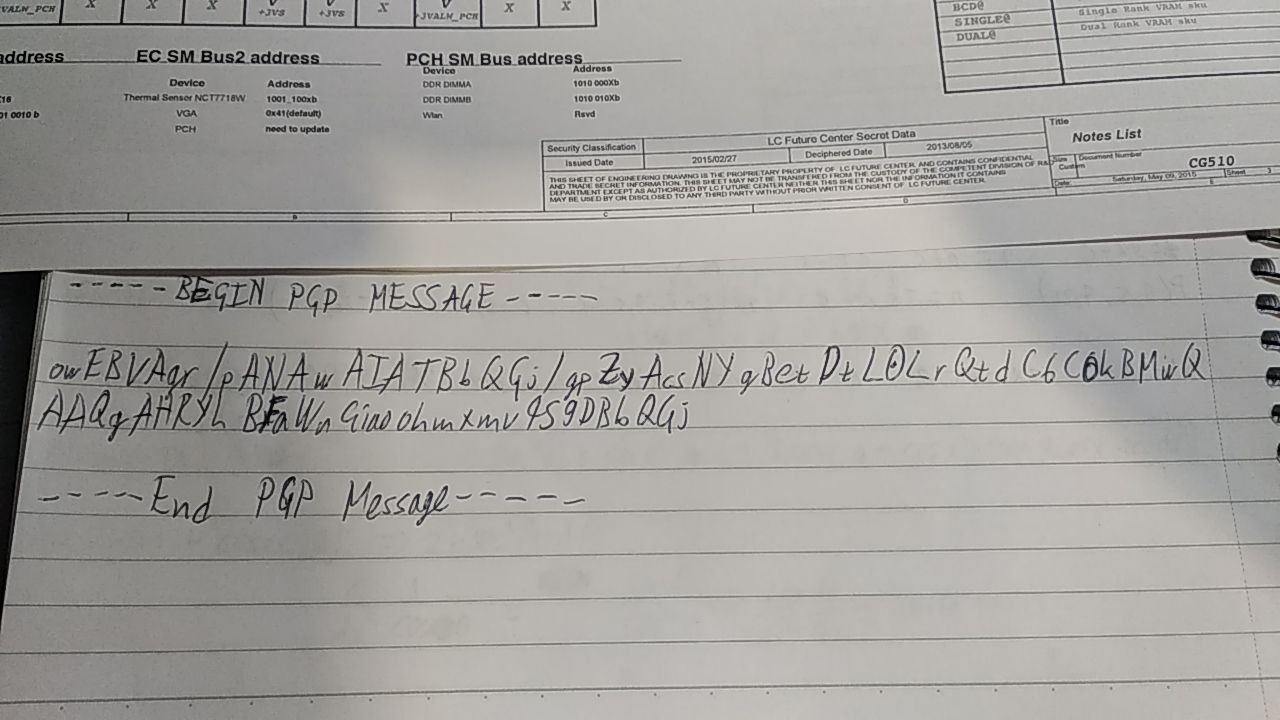 VALN_PCH X X V +3VS V +3VS X V +3VALN_PCH X X
BCD@
SINGLE@ Single Rank VRAM sku
DUAL@ Dual Rank VRAM sku
address
EC SM Bus2 address
PCH SM Bus address
Device Address
Thermal Sensor NCT7718W 1001_100xb
VGA 0x41(default)
PCH need to update
Device Address
DDR DIMMA 1010 000Xb
DDR DIMMB 1010 010Xb
Wlan Rsvd
Security Classification LC Future Center Secret Data
Issued Date 2015/02/27 Deciphered Date 2013/08/05
THIS SHEET OF ENGINEERING DRAWING IS THE PROPRIETARY PROPERTY OF LC FUTURE CENTER. AND CONTAINS CONFIDENTIAL
AND TRADE SECRET INFORMATION. THIS SHEET MAY NOT BE TRANSFERED FROM THE CUSTODY OF THE COMPETENT DIVISION OF R&D
DEPARTMENT EXCEPT AS AUTHORIZED BY LC FUTURE CENTER NEITHER THIS SHEET NOR THE INFORMATION IT CONTAINS
MAY BE USED BY OR DISCLOSED TO ANY THIRD PARTY WITHOUT PRIOR WRITTEN CONSENT OF LC FUTURE CENTER.
Title
Notes List
Size Document Number
Custom CG510
Date: Saturday, May 09, 2015 Sheet 3
B C D E
-----BEGIN PGP MESSAGE-----
owEBVAqr/pANAwAIATBbQGj/gpZyAcsNYgBetDtLOLrQtdC6C0kBMwQ
AAQgAHRYhBFaWnGiaoohmxmv9S9DBbQGj
-----End PGP Message-----